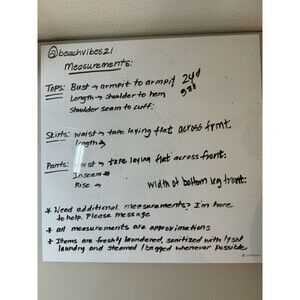 @beachvibes21
Measurements:
Tops: Bust → armpit to armpit
Length → shoulder to hem
Shoulder seam to cuff.
Skirts: waist → tape laying flat across front.
length →
Pants: waist → tape laying flat across front.
Inseam →
Rise → Width of bottom leg front.
* Need additional measurements? I'm here
to help. Please message
* all measurements are approximations
* Items are freshly laundered, sanitized with lysol
laundry and steamed / tagged whenever possible